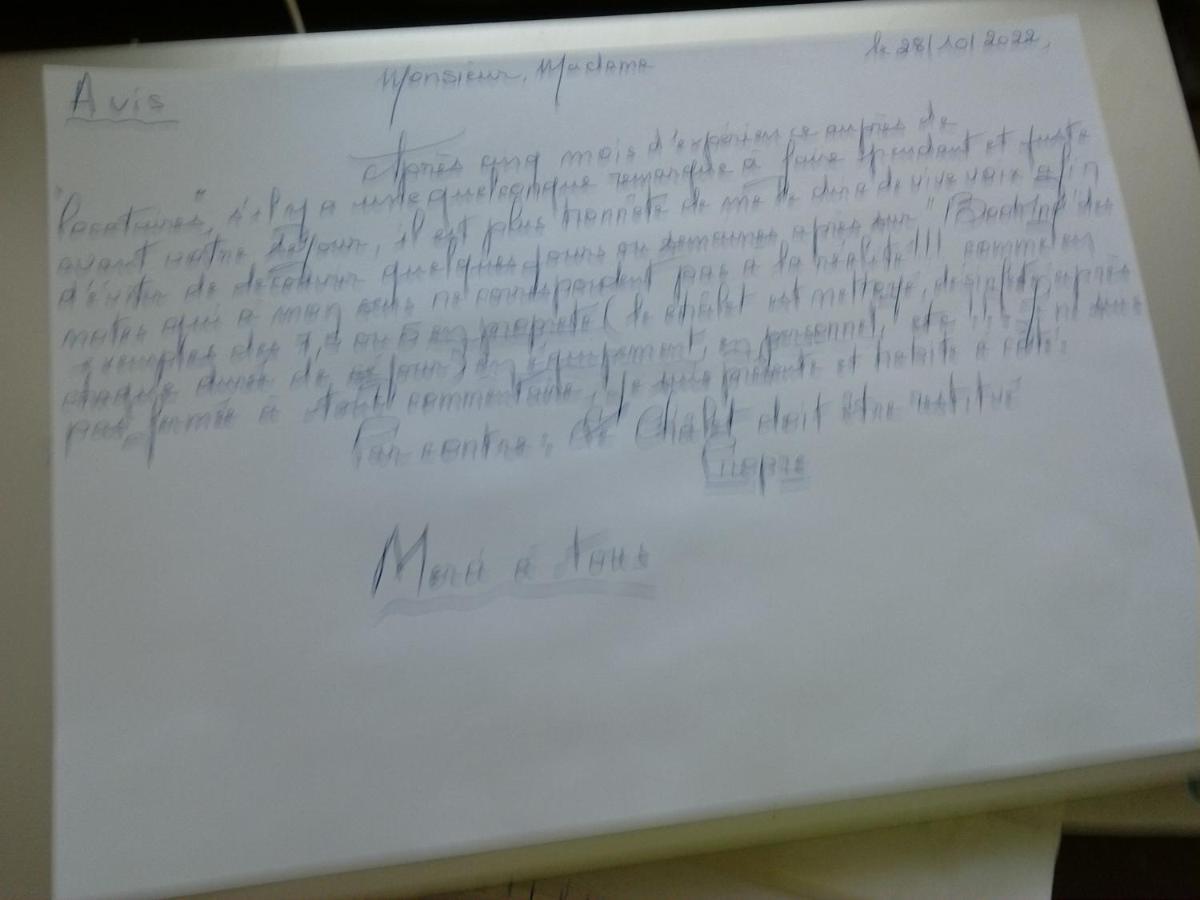 le 28/10/2022,
Avis
Monsieur, Madame
Après cinq mois d'expérience auprès de
"locataires", s'il y a une quelconque remarque à faire pendant et juste
avant votre séjour, il est plus honnête de me le dire de vive voix afin
d'éviter de découvrir quelques jours ou semaines après sur "Booking" des
notes qui à mon sens ne correspondent pas à la réalité !!! comme en
exemples des ou en propreté (le châlet est nettoyé, désinfecté après
chaque durée de séjour) en équipement, en personnel, etc !!! Je ne suis
pas fermée à tout commentaire, je suis présente et habite à côté.
Par contre : Le Châlet doit être restitué
Propre
Merci à tous